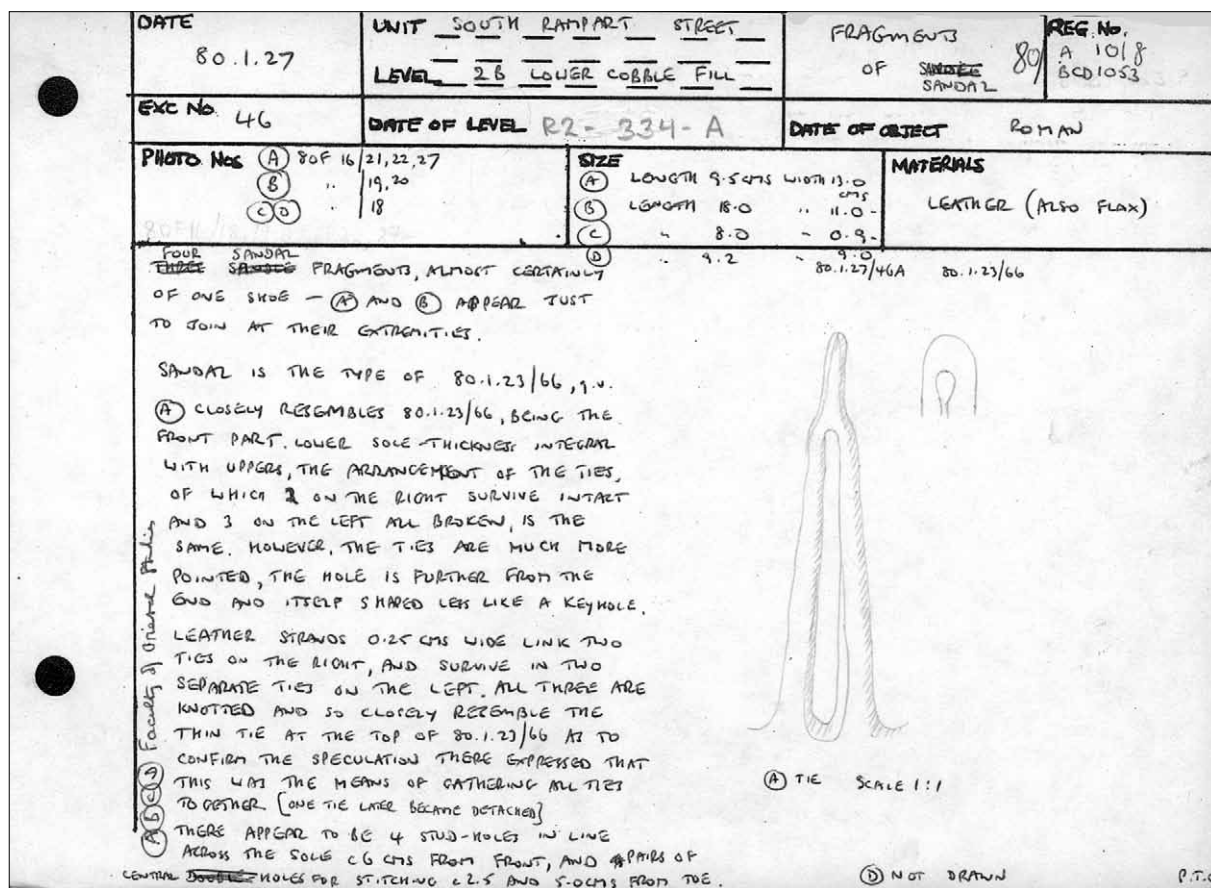 DATE
80.1.27
UNIT SOUTH RAMPART STREET
LEVEL 2B LOWER COBBLE FILL
FRAGMENTS
OF SANDLE
SANDAL
80/
REG. No.
A 1018
BCD1053
EXC No. 46
DATE OF LEVEL R2-334-A
DATE OF OBJECT ROMAN
PHOTO Nos (A) 80F 16/21,22,27
(B) " /19,20
(C)(D) " /18
SIZE
(A) LENGTH 9.5 CMS WIDTH 13.0 CMS
(B) LENGTH 18.0 " 11.0 -
(C) " 8.0 - 0.9 -
(D) " 9.2 - 9.0
MATERIALS
LEATHER (ALSO FLAX)
FOUR SANDAL
THREE SANDLE FRAGMENTS, ALMOST CERTAINLY
OF ONE SHOE - (A) AND (B) APPEAR JUST
TO JOIN AT THEIR EXTREMITIES.
SANDAL IS THE TYPE OF 80.1.23/66, q.v.
(A) CLOSELY RESEMBLES 80.1.23/66, BEING THE
FRONT PART. LOWER SOLE-THICKNESS INTEGRAL
WITH UPPERS, THE ARRANGEMENT OF THE TIES,
OF WHICH 2 ON THE RIGHT SURVIVE INTACT
AND 3 ON THE LEFT ALL BROKEN, IS THE
SAME. HOWEVER, THE TIES ARE MUCH MORE
POINTED, THE HOLE IS FURTHER FROM THE
END AND ITSELF SHAPED LESS LIKE A KEYHOLE.
LEATHER STRANDS 0.25 CMS WIDE LINK TWO
TIES ON THE RIGHT, AND SURVIVE IN TWO
SEPARATE TIES ON THE LEFT. ALL THREE ARE
KNOTTED AND SO CLOSELY RESEMBLE THE
THIN TIE AT THE TOP OF 80.1.23/66 AS TO
CONFIRM THE SPECULATION THERE EXPRESSED THAT
THIS WAS THE MEANS OF GATHERING ALL TIES
TOGETHER [ONE TIE LATER BECAME DETACHED]
THERE APPEAR TO BE 4 STUD-HOLES IN LINE
ACROSS THE SOLE c6 CMS FROM FRONT, AND PAIRS OF
CENTRAL DOUBLE HOLES FOR STITCHING c2.5 AND 5.0CMS FROM TOE.
(A)(B)(C)(D) Faculty of Oriental Studies
80.1.27/46A
80.1.23/66
(A) TIE SCALE 1:1
(D) NOT DRAWN
P.T.O